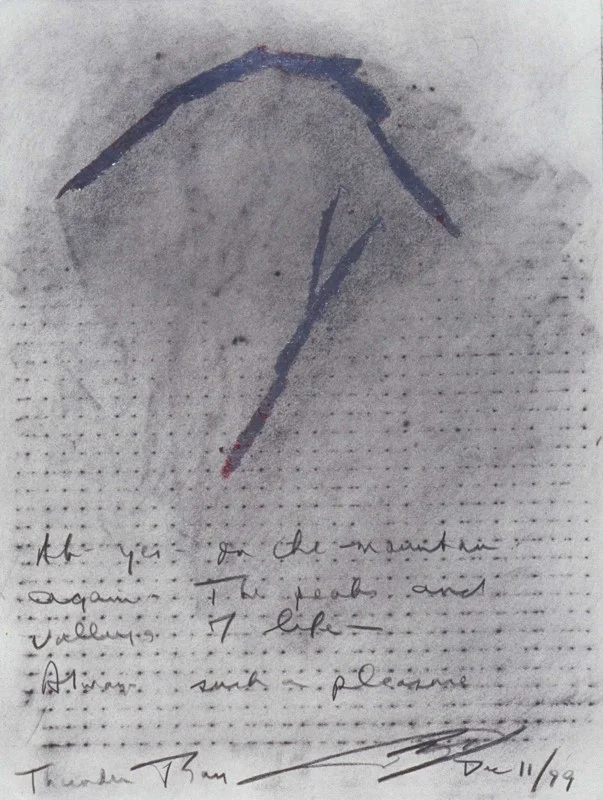 Ah yes - on the mountain
again. The peaks and
valleys of life —
Always such a pleasure
Thunder Bay Dec 11/99